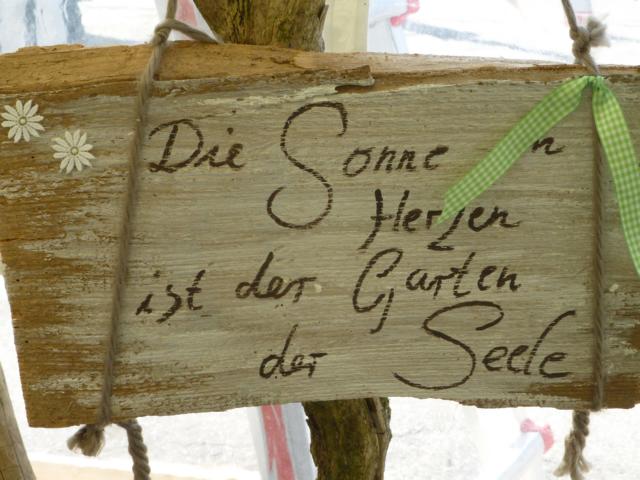 Die Sonne
Herzen
ist der Garten
der Seele